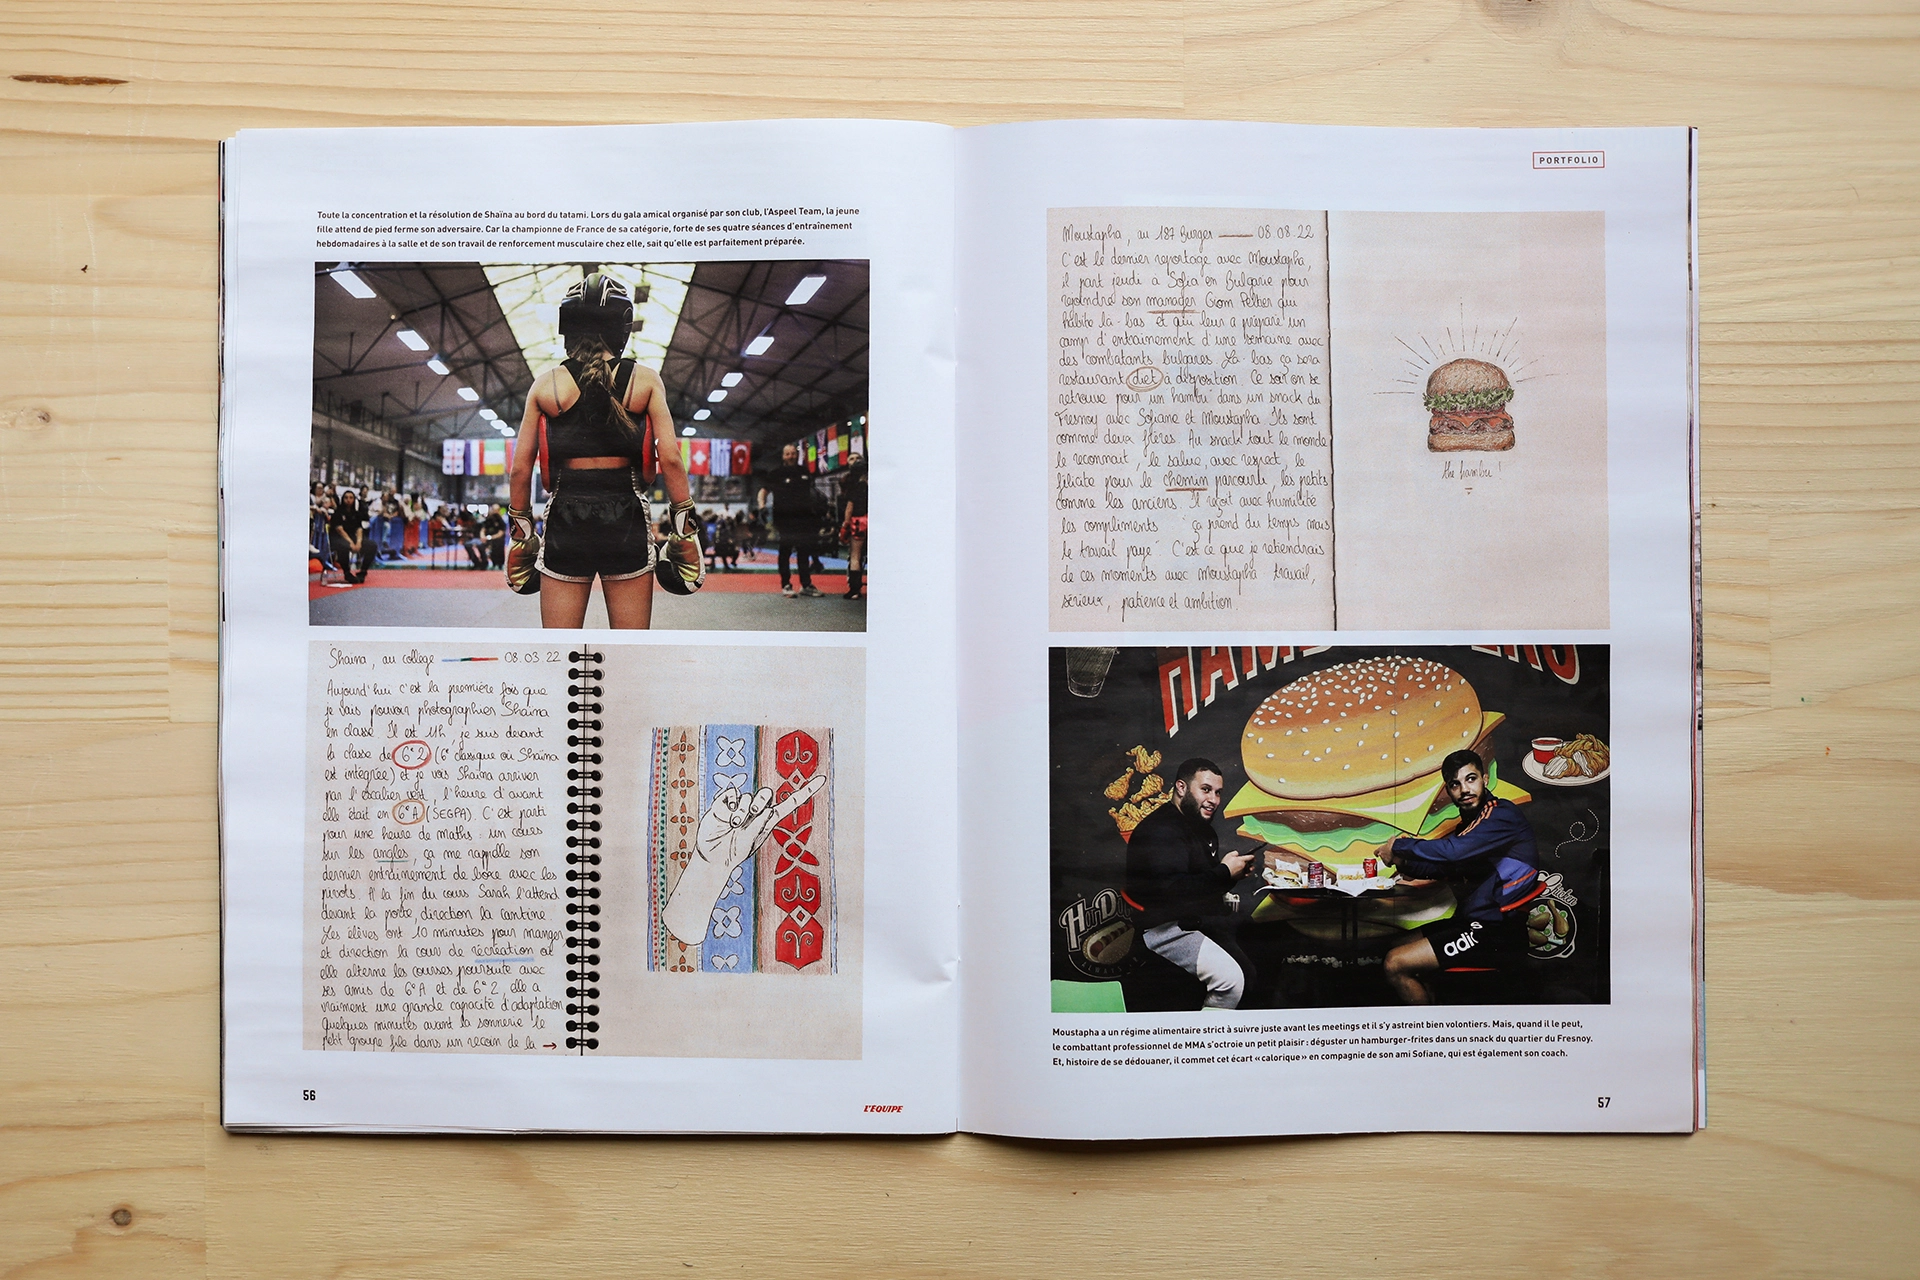 Toute la concentration et la résolution de Shaïna au bord du tatami. Lors du gala amical organisé par son club, l'Aspeel Team, la jeune
fille attend de pied ferme son adversaire. Car la championne de France de sa catégorie, forte de ses quatre séances d'entraînement
hebdomadaires à la salle et de son travail de renforcement musculaire chez elle, sait qu'elle est parfaitement préparée.
Shaïna, au collège 08.03.22
Aujourd'hui c'est la première fois que
je vais pouvoir photographier Shaïna
en classe. Il est 11h, je suis devant
la classe de 6e2 (6e classique où Shaïna
est intégrée) et je vois Shaïna arriver
par l'escalier vert, l'heure d'avant
elle était en 6eA (SEGPA). C'est parti
pour une heure de maths : un cours
sur les angles, ça me rappelle son
dernier entraînement de boxe avec les
pivots. A la fin du cours Sarah l'attend
devant la porte, direction la cantine.
Les élèves ont 10 minutes pour manger
et direction la cour de récréation où
elle alterne les courses poursuite avec
ses amis de 6eA et de 6e2, elle a
vraiment une grande capacité d'adaptation
Quelques minutes avant la sonnerie le
petit groupe file dans un recoin de la →
56
L'ÉQUIPE
PORTFOLIO
Moustapha, au 187 Burger 08.08.22
C'est le dernier reportage avec Moustapha,
il part jeudi a Sofia en Bulgarie pour
rejoindre son manager Giom Peltier qui
habite là-bas et qui leur a préparé un
camp d'entrainement d'une semaine avec
des combatants bulgares. Là-bas ça sera
restaurant diet à disposition. Ce soir on se
retrouve pour un hambu dans un snack du
Fresnoy avec Sofiane et Moustapha Ils sont
comme deux frères. Au snack tout le monde
le reconnait, le salue, avec respect, le
félicite pour le chemin parcouru, les petits
comme les anciens. Il reçoit avec humilité
les compliments "ça prend du temps mais
le travail paye" C'est ce que je retiendrais
de ces moments avec Moustapha travail,
sérieux, patience et ambition.
the hambu !
HOT DO
Chicken
adi
Moustapha a un régime alimentaire strict à suivre juste avant les meetings et il s'y astreint bien volontiers. Mais, quand il le peut,
le combattant professionnel de MMA s'octroie un petit plaisir : déguster un hamburger-frites dans un snack du quartier du Fresnoy.
Et, histoire de se dédouaner, il commet cet écart «calorique» en compagnie de son ami Sofiane, qui est également son coach.
57